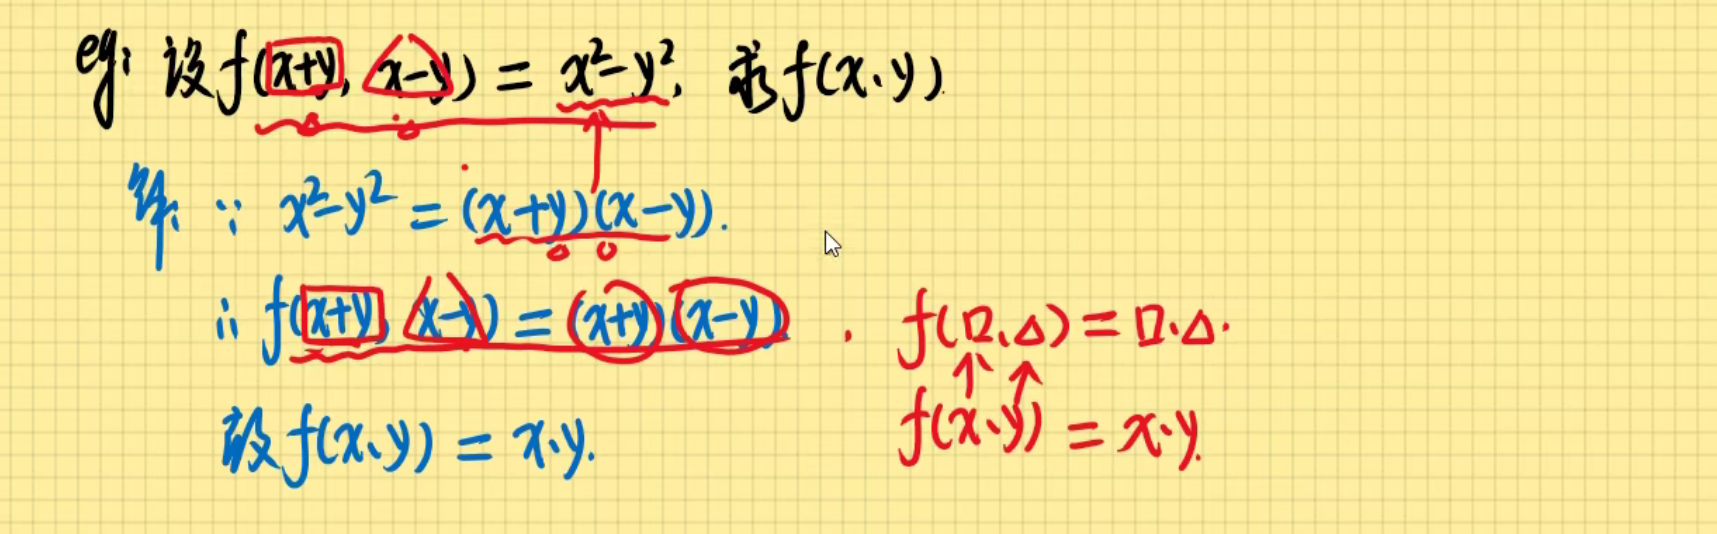 eg: 设f(x+y, x-y) = x²-y², 求f(x、y).
解: ∵ x²-y² = (x+y)(x-y).
∴ f(x+y, x-y) = (x+y)(x-y). f(□、△) = □·△.
故f(x、y) = x·y. f(x、y) = x·y.